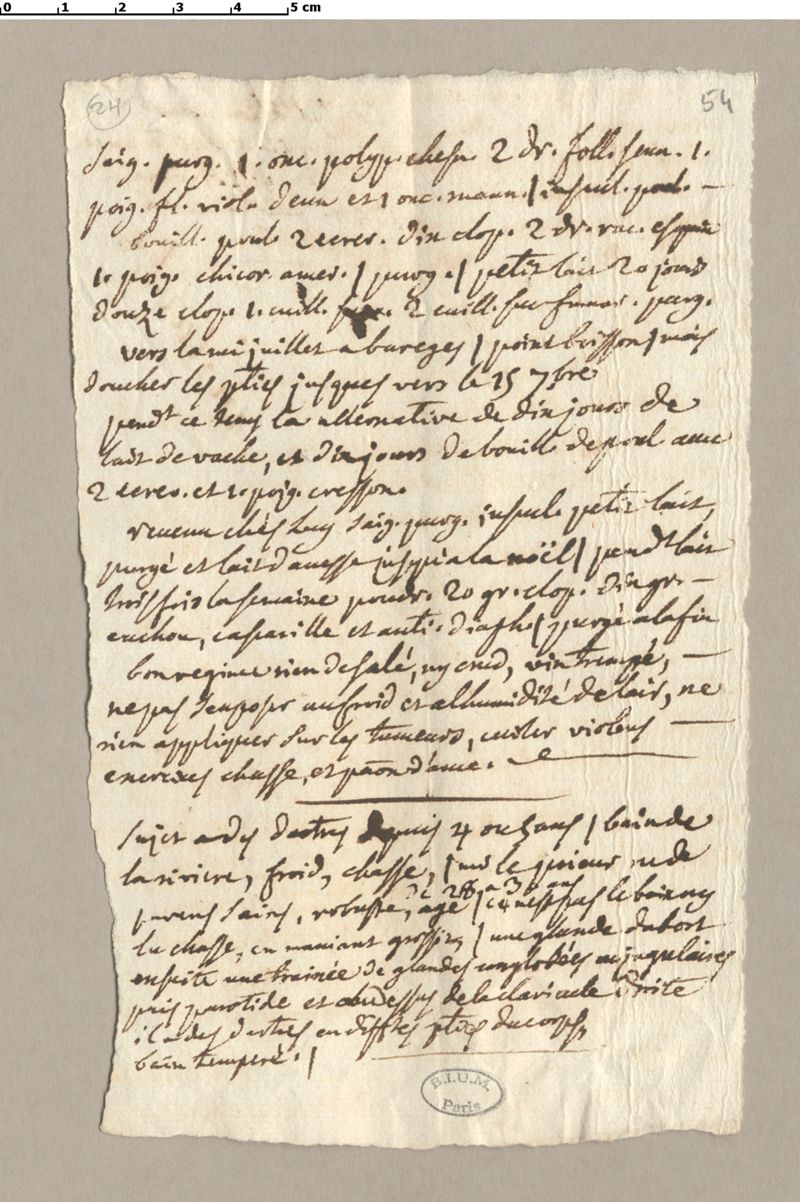 0 1 2 3 4 5 cm
24 54
Saig. purg. 1. onc. polyp. chesn. 2 dr. foll. senn. 1.
poig. fl. viol. d'eux et 1 onc. mann. / infus. poul. —
bouill. poul. 2 ecrev. dix clop. 2 dr. rac. esquin
1. poig. chicor. amer. / purg. / petit lait 20 jours
douze clop. 1. cuill. 2 cuill. suc fumer. purg.
vers la mi juillet a bareges / point boisson / mais
doucher les pties jusques vers le 15 7bre
pendt ce tems la alternative de dix jours de
lait de vache, et dix jours de bouill. de poul avec
2 ecrev. et 1. poig. cresson.
revenu chés luy saig. purg. infus. petit lait,
purgé et lait d'anesse jusqu'a la noël / pendt lait
trois fois la semaine poudr. 20 gr. clop. dix gr. —
cachou, cascarille et anti. diaph. / purgé a la fin
bon regime rien de salé, ny crud, vin trempé, —
ne pas s'exposer au froid et a l'humidité de l'air, ne
rien appliquer sur les tumeurs, eviter violens —
exercices chasse, et paon d'ame.
Sujet a des dartres depuis 4 ou 5 ans / bain de
la riviere, froid, chasse, / mr le prieur né de
parens sains, robuste, agé de 28 a 30 ans / ce n'est pas le bain ny
la chasse, en maniant grossit, / une glande dabort
ensuite une trainée de glandes conglobées au jugulaires
puis parotide et au dessus de la clavicule droite
il a des dartres en difftes pties du corps,
bain temperé. /
B.I.U.M.
Paris